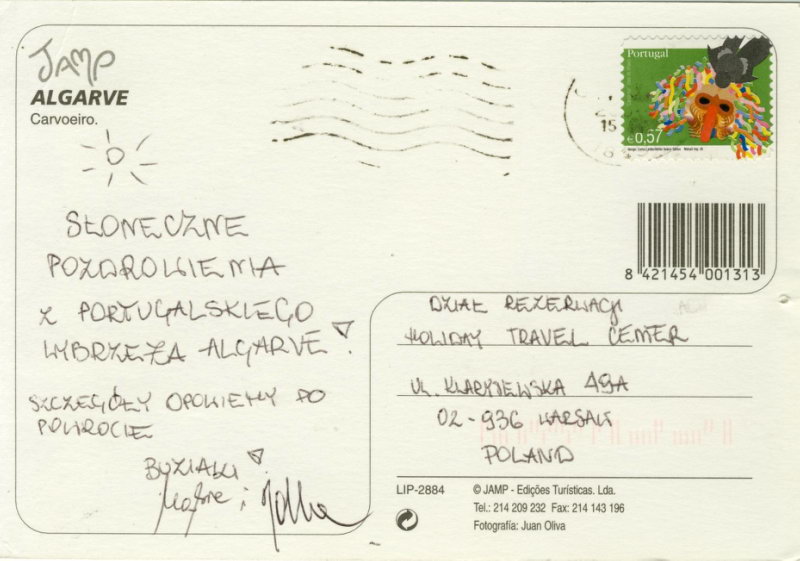 JAMP
ALGARVE
Carvoeiro.
Portugal
€0,57
15
SŁONECZNE
POZDROWIENIA
Z PORTUGALSKIEGO
WYBRZEŻA ALGARVE!
SZCZEGÓŁY OPOWIEMY PO
POWROCIE
BUZIAKI!
i Jolka
8 421454 001313
DZIAŁ REZERWACJI
HOLIDAY TRAVEL CENTER
UL. KLARYSEWSKA 49A
02-936 WARSAW
POLAND
LIP-2884
© JAMP - Edições Turísticas. Lda.
Tel.: 214 209 232 Fax: 214 143 196
Fotografia: Juan Oliva